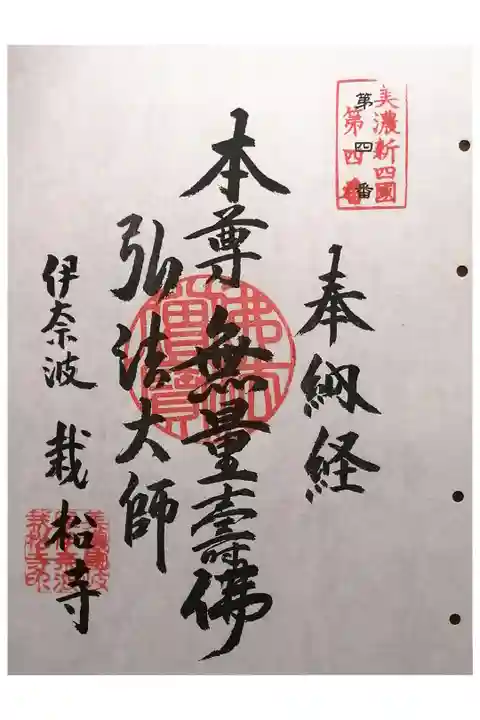 美濃新四國
第四番
第四番
奉納経
本尊 無量壽佛
弘法大師
伊奈波 栽松寺